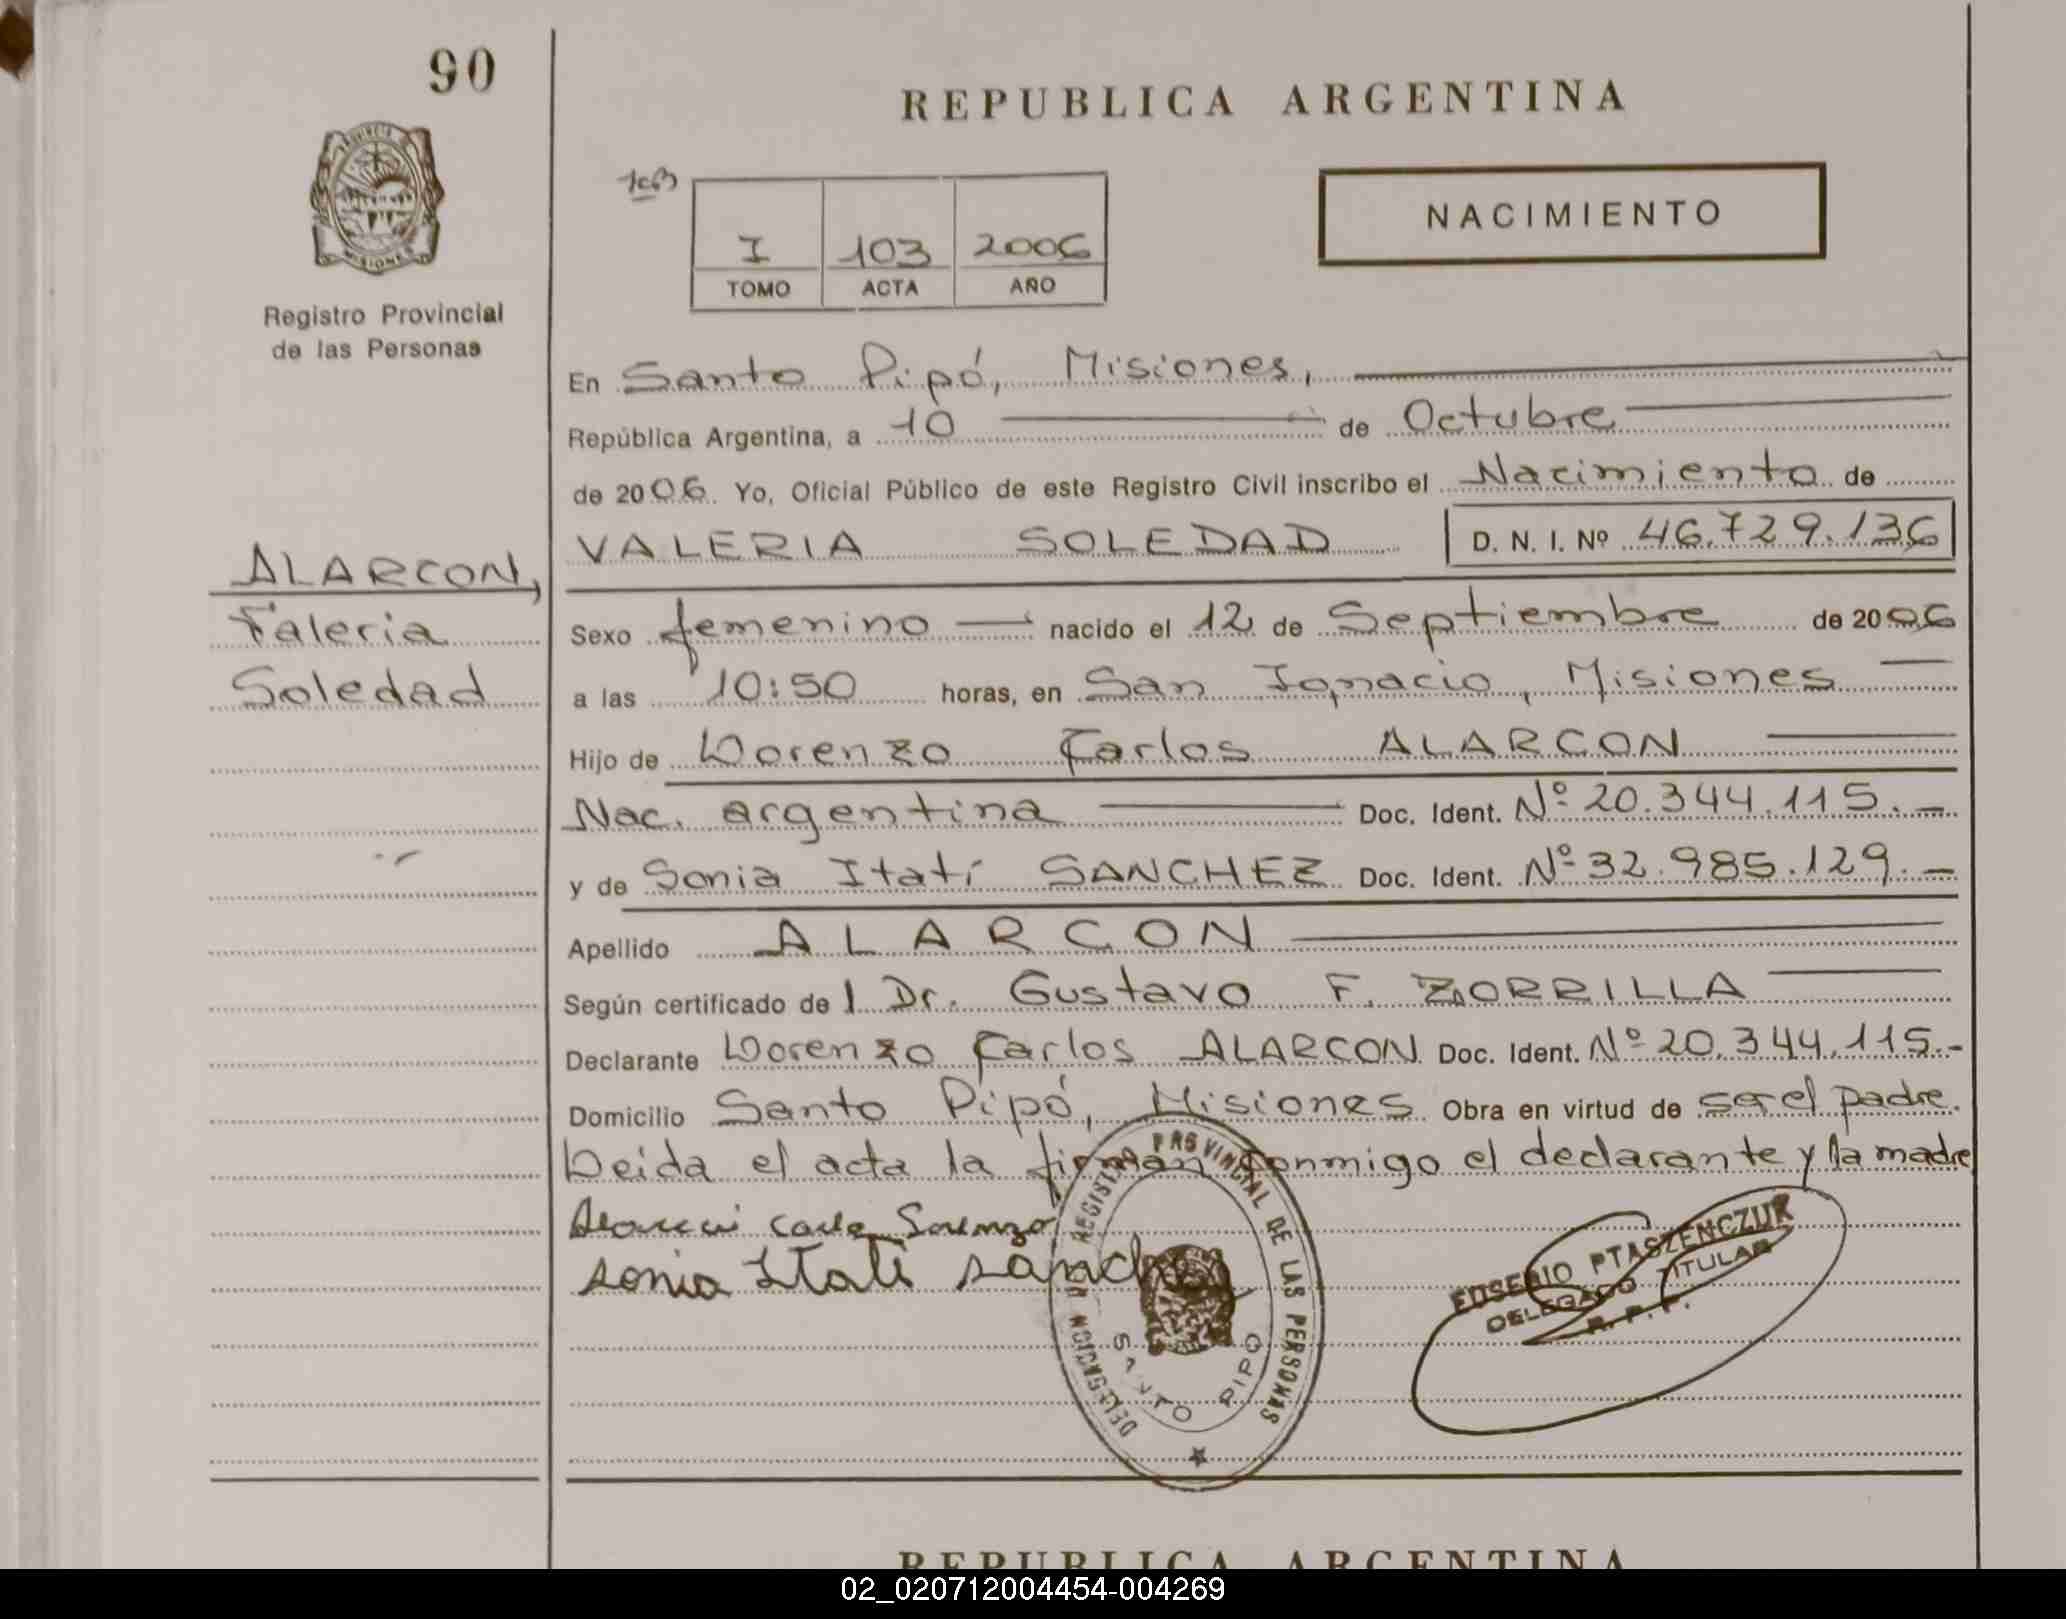 90
REPUBLICA ARGENTINA
NACIMIENTO
103
I 103 2006
TOMO ACTA AÑO
PROVINCIA
MISIONES
Registro Provincial
de las Personas
En Santo Pipó, Misiones,
República Argentina, a 10 de Octubre
de 2006. Yo, Oficial Público de este Registro Civil inscribo el Nacimiento de
VALERIA SOLEDAD D. N. I. Nº 46.729.136
ALARCON,
Valeria
Soledad
Sexo femenino nacido el 12 de Septiembre de 2006
a las 10:50 horas, en San Ignacio, Misiones
Hijo de Lorenzo Carlos ALARCON
Nac. argentina Doc. Ident. Nº 20.344.115.-
y de Sonia Itatí SANCHEZ Doc. Ident. Nº 32.985.129.-
Apellido ALARCON
Según certificado de l Dr. Gustavo F. ZORRILLA
Declarante Lorenzo Carlos ALARCON Doc. Ident. Nº 20.344.115.-
Domicilio Santo Pipó, Misiones Obra en virtud de ser el padre.
Leida el acta la firman conmigo el declarante y la madre
Sonia Itati Sanch
DELEGACION REGISTRO PROVINCIAL DE LAS PERSONAS
SANTO PIPO
EUSEBIO PTASZENCZUK
DELEGADO TITULAR
R. P. P.
REPUBLICA ARGENTINA
02_020712004454-004269